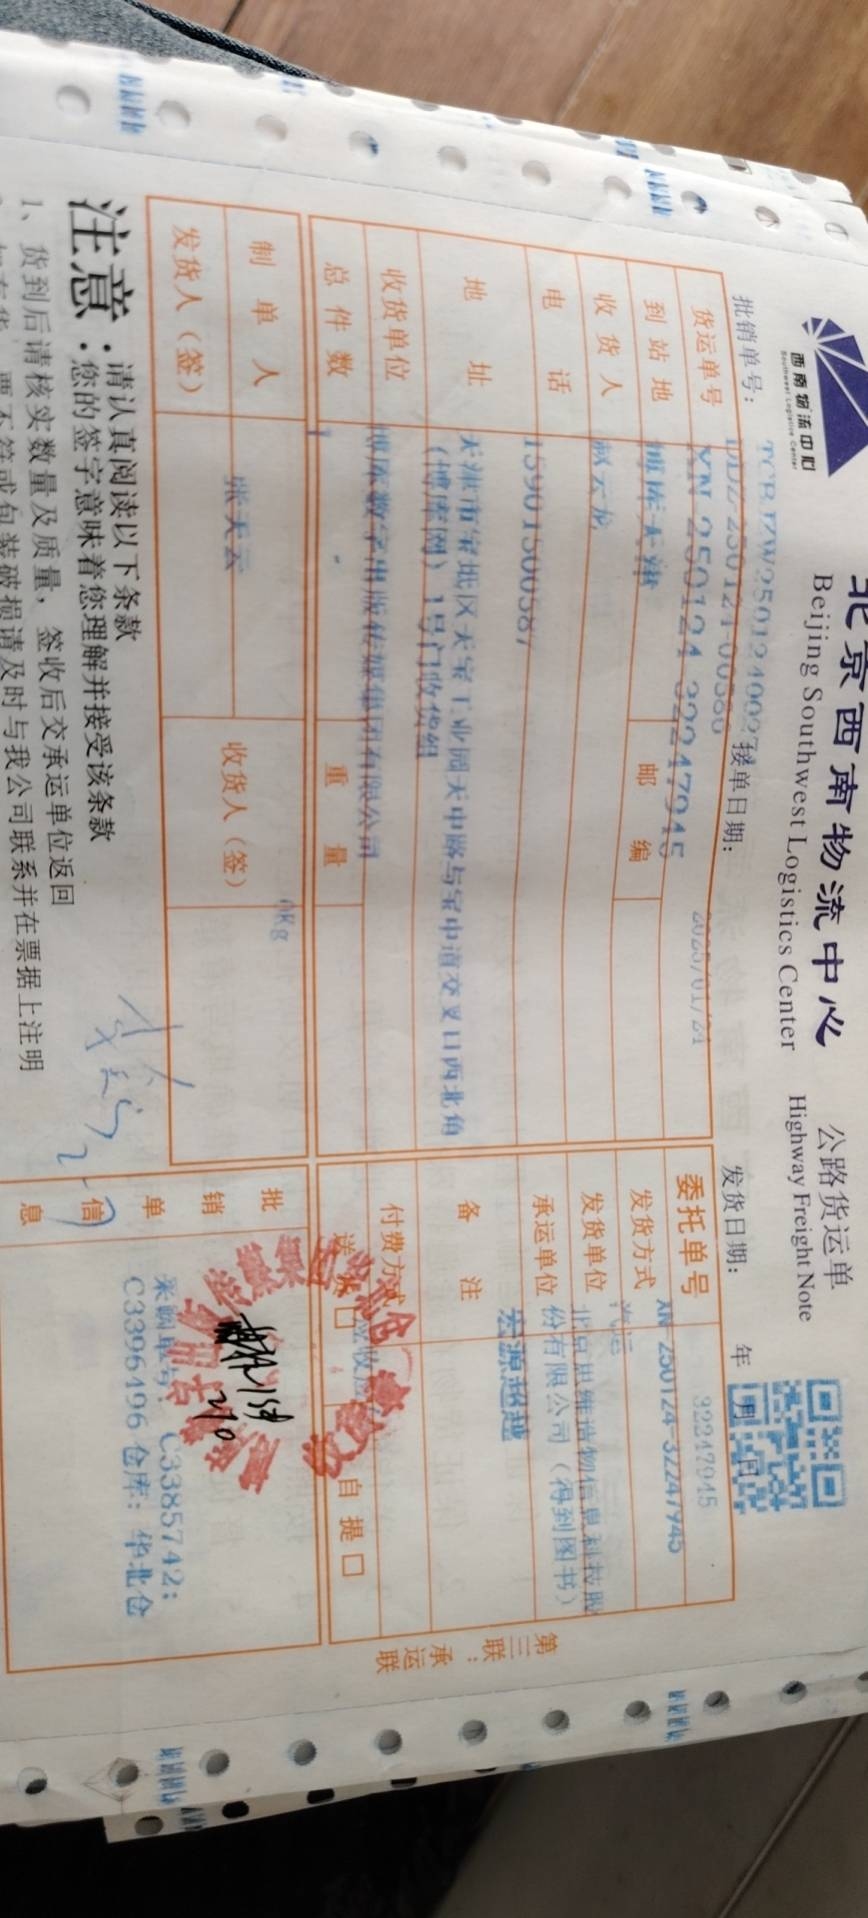 西南物流中心
Southwest Logistics Center
北京西南物流中心
Beijing Southwest Logistics Center
公路货运单
Highway Freight Note
批销单号：
接单日期：
2025/01/24
发货日期： 年 月 日
货运单号 XN-250124-32247945
委托单号 32247945
XN-250124-32247945
到站地
邮编
发货方式 汽运
收货人 赵云龙
发货单位 北京思维造物信息科技股
份有限公司（得到图书）
电话 15901500587
承运单位 宏源超越
地址 天津市宝坻区天宝工业园天中路与宝中道交叉口西北角
（博库网）1号门收货组
备注
收货单位 博库数字出版传媒集团有限公司
付费方式
总件数 1
重量 0Kg
送 自提□
制单人 张天云
收货人（签）
发货人（签）
批销单信息
采购单号：C3385742；
C3396496 仓库：华北仓
第三联：承运联
注意：
请认真阅读以下条款
您的签字意味着您理解并接受该条款
1、货到后请核实数量及质量，签收后交承运单位返回
票不符或包装破损请及时与我公司联系并在票据上注明